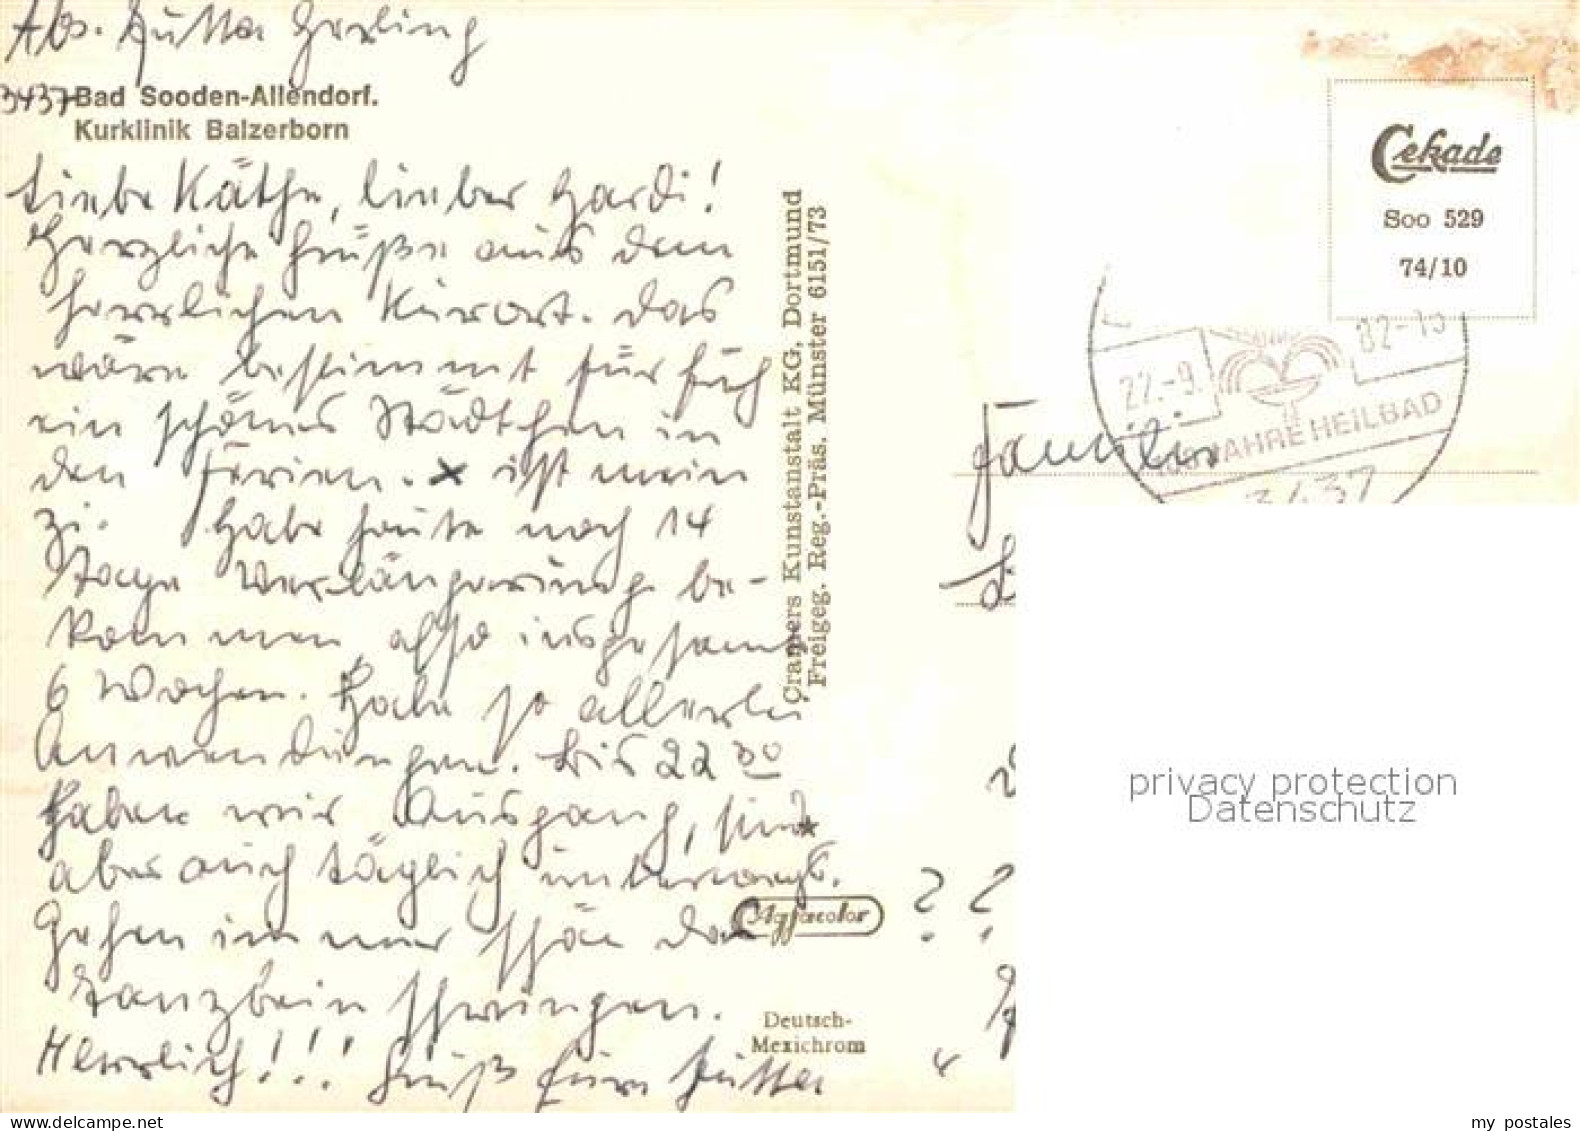 Abs. Jutta Gerling
3437 Bad Sooden-Allendorf.
Kurklinik Balzerborn
Liebe Käthe, lieber Hardi!
Herzliche Grüße aus dem
herrlichen Kurort. Das
wäre bestimmt für Euch
ein schönes Städtchen in
den Ferien. x ist mein
Zi. Habe heute noch 14
Tage Verlängerung be-
kommen, also insgesamt
6 Wochen. Habe so allerlei
Anwendungen. Bis 22 30
haben wir Ausgang, sind
aber auch täglich unterwegs.
Gehen immer schön das
Tanzbein schwingen.
Herrlich!!! Gruß Eure Jutta
Cramers Kunstanstalt KG, Dortmund
Freigeg. Reg.-Präs. Münster 6151/73
Agfacolor
Deutsch-
Mexichrom
Cekade
Soo 529
74/10
22.-9. 82-15
JAHRE HEILBAD
3437
Familie
? ?
privacy protection
Datenschutz
www.delcampe.net
my postales